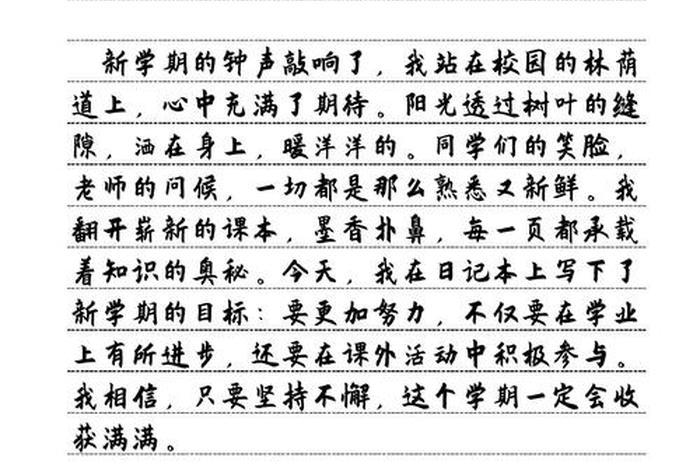 新学期的钟声敲响了，我站在校园的林荫
道上，心中充满了期待。阳光透过树叶的缝
隙，洒在身上，暖洋洋的。同学们的笑脸，
老师的问候，一切都是那么熟悉又新鲜。我
翻开崭新的课本，墨香扑鼻，每一页都承载
着知识的奥秘。今天，我在日记本上写下了
新学期的目标：要更加努力，不仅要在学业
上有所进步，还要在课外活动中积极参与。
我相信，只要坚持不懈，这个学期一定会收
获满满。